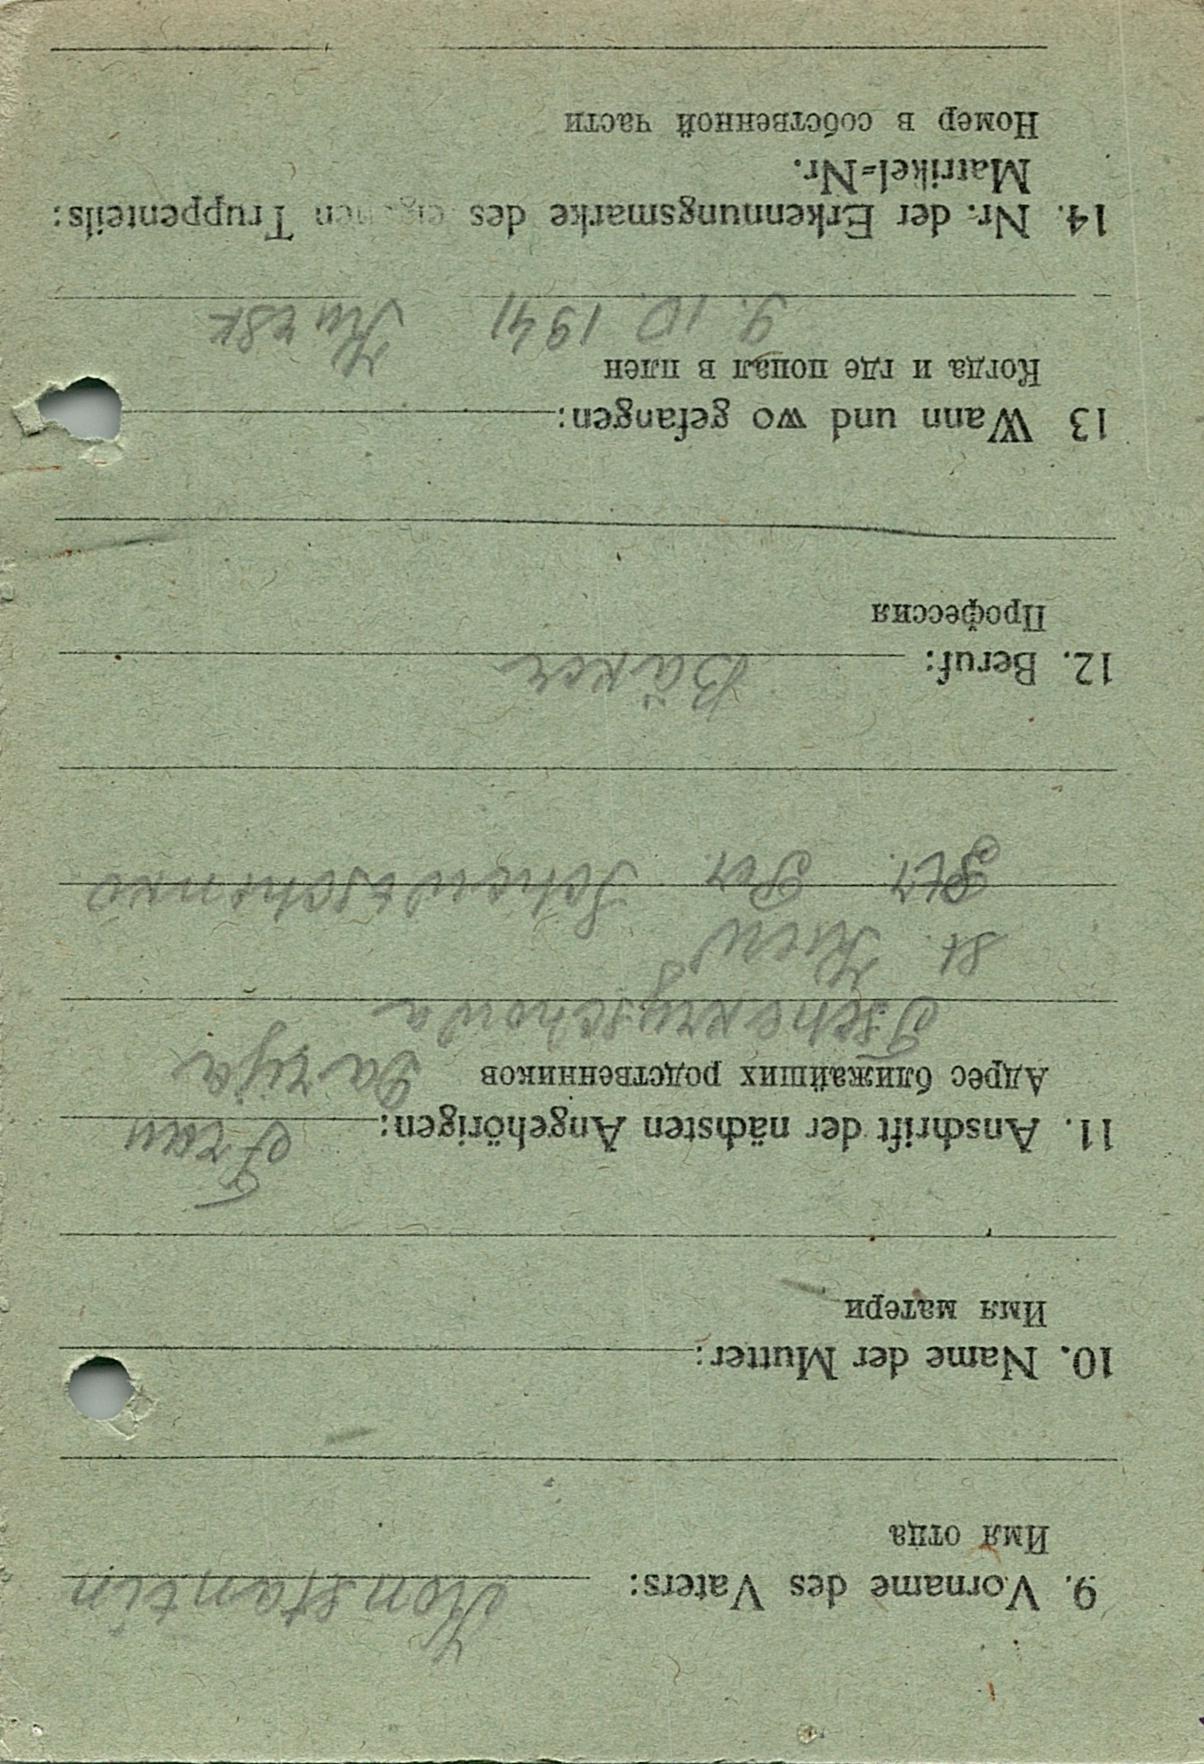 9. Vorname des Vaters: Konstantin
Имя отца
10. Name der Mutter:
Имя матери
11. Anschrift der nächsten Angehörigen: Frau
Адрес ближайших родственников Darija
st. Kiew
Schewtschenko
12. Beruf: Bäker
Профессия
13 Wann und wo gefangen:
Когда и где попал в плен
9. 10. 1941 Kursk
14. Nr. der Erkennungsmarke des eigenen Truppenteils:
Matrikel=Nr.
Номер в собственной части